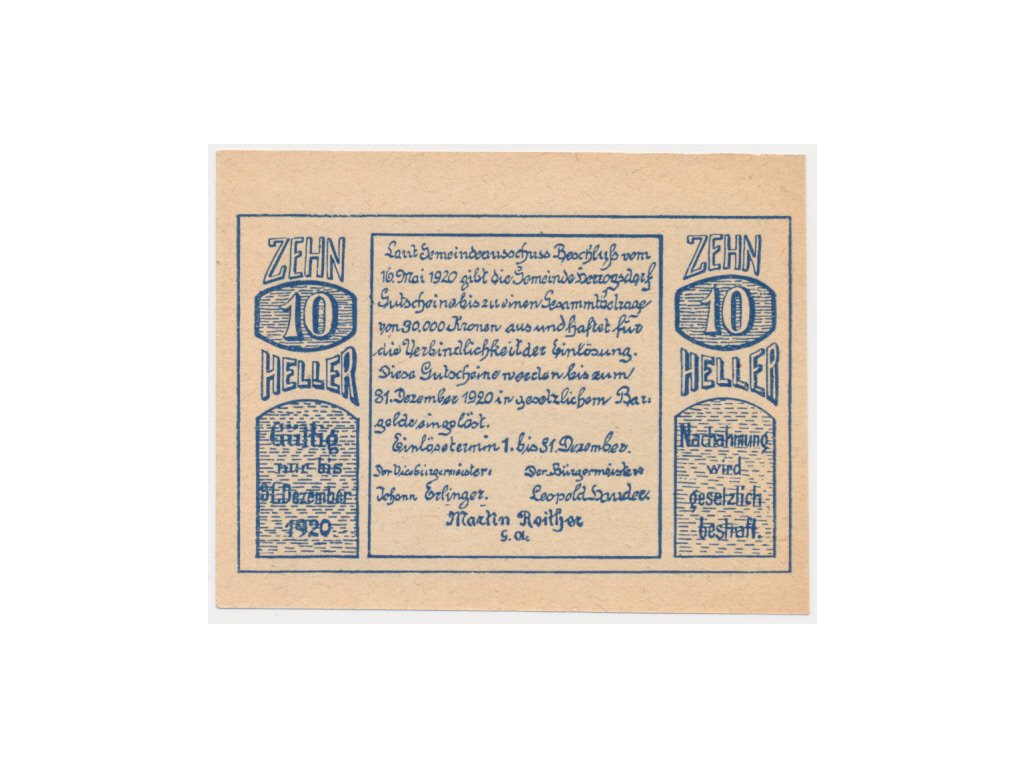 ZEHN
10
HELLER
Gültig
nur bis
31. Dezember
1920
Laut Gemeindeausschuss Beschluß vom
16. Mai 1920 gibt die Gemeinde Herzogsdorf
Gutscheine bis zu einen Gesammtbetrage
von 30.000 Kronen aus und haftet für
die Verbindlichkeit der Einlösung.
Diese Gutscheine werden bis zum
31. Dezember 1920 in gesetzlichem Bar=
gelde eingelöst.
Einlösetermin 1. bis 31. Dezember.
Der Vicebürgermeister: Der Bürgermeister:
Johann Erlinger. Leopold
Martin Reither
G. A.
ZEHN
10
HELLER
Nachahmung
wird
gesetzlich
bestraft.